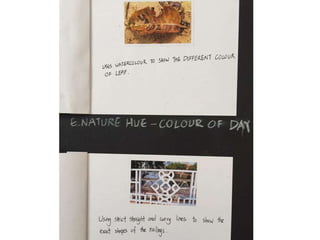 USES WATERCOLOUR TO SHOW THE DIFFERENT COLOUR
OF LEAF.
E.NATURE HUE - COLOUR OF DAY
Using strict straight and curvy lines to show the
exact shapes of the railings.